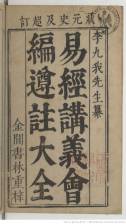 狀元史及超訂
李九我先生纂
易經講義會
編遵註大全
金閶書林重梓